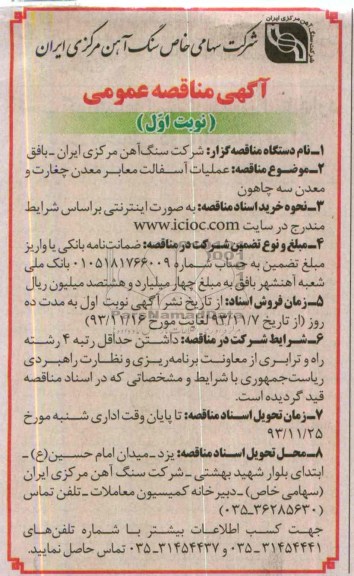 شرکت سهامی خاص سنگ آهن مرکزی ایران
آگهی مناقصه عمومی
(نوبت اوّل)
۱ـ نام دستگاه مناقصه‌گزار: شرکت سنگ‌آهن مرکزی ایران ـ بافق
۲ـ موضوع مناقصه: عملیات آسفالت معابر معدن چغارت و
معدن سه چاهون
۳ـ نحوه خرید اسناد مناقصه: به صورت اینترنتی براساس شرایط
مندرج در سایت www.icioc.com
۴ـ مبلغ و نوع تضمین شرکت در مناقصه: ضمانت‌نامه بانکی یا واریز
مبلغ تضمین به حساب شماره ۰۱۰۵۱۸۱۷۶۶۰۰۹ بانک ملی
شعبه آهنشهر بافق به مبلغ چهار میلیارد و هشتصد میلیون ریال
۵ـ زمان فروش اسناد: از تاریخ نشر آگهی نوبت اول به مدت ده
روز (از تاریخ ۹۳/۱۱/۷ لغایت مورخ ۹۳/۱۱/۱۶)
۶ـ شرایط شرکت در مناقصه: داشتن حداقل رتبه ۴ رشته
راه و ترابری از معاونت برنامه‌ریزی و نظارت راهبردی
ریاست‌جمهوری با شرایط و مشخصاتی که در اسناد مناقصه
قید گردیده است.
۷ـ زمان تحویل اسناد مناقصه: تا پایان وقت اداری شنبه مورخ
۹۳/۱۱/۲۵
۸ـ محل تحویل اسناد مناقصه: یزد ـ میدان امام حسین(ع) ـ
ابتدای بلوار شهید بهشتی ـ شرکت سنگ آهن مرکزی ایران
(سهامی خاص) ـ دبیرخانه کمیسیون معاملات ـ تلفن تماس
(۰۳۵-۳۶۲۸۵۶۳۰)
جهت کسب اطلاعات بیشتر با شماره تلفن‌های
۰۳۵-۳۱۴۵۴۴۴۱ و ۰۳۵-۳۱۴۵۴۴۳۷ تماس حاصل نمایید.